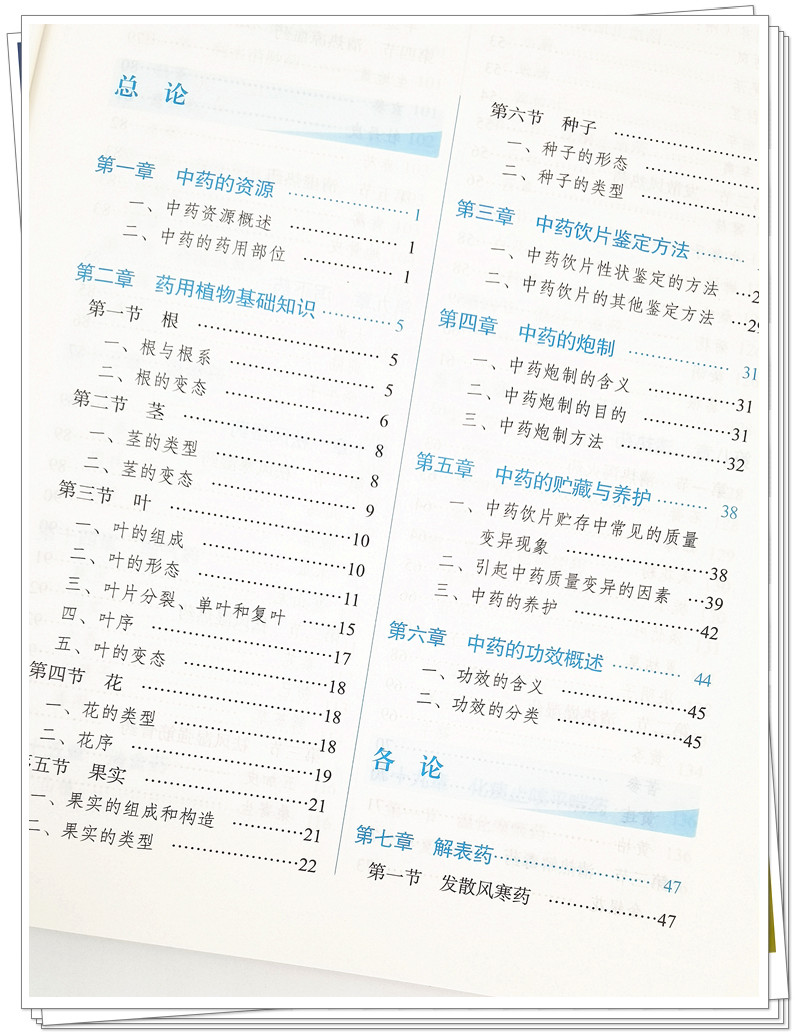 总 论
第一章 中药的资源 ……………… 1
一、中药资源概述 ……………… 1
二、中药的药用部位 ……………… 1
第二章 药用植物基础知识 ……… 5
第一节 根 ……………… 5
一、根与根系 ……………… 5
二、根的变态 ……………… 6
第二节 茎 ……………… 8
一、茎的类型 ……………… 8
二、茎的变态 ……………… 9
第三节 叶 ……………… 10
一、叶的组成 ……………… 10
二、叶的形态 ……………… 11
三、叶片分裂、单叶和复叶 …… 15
四、叶序 ……………… 17
五、叶的变态 ……………… 18
第四节 花 ……………… 18
一、花的类型 ……………… 18
二、花序 ……………… 19
五节 果实 ……………… 21
一、果实的组成和构造 ……… 21
二、果实的类型 ……………… 22
第六节 种子 ………………
一、种子的形态 ………………
二、种子的类型 ………………
第三章 中药饮片鉴定方法 ………
一、中药饮片性状鉴定的方法 …2
二、中药饮片的其他鉴定方法 …29
第四章 中药的炮制 ……………… 31
一、中药炮制的含义 ………… 31
二、中药炮制的目的 ………… 31
三、中药炮制方法 …………… 32
第五章 中药的贮藏与养护 ……… 38
一、中药饮片贮存中常见的质量
变异现象 ……………… 38
二、引起中药质量变异的因素 …39
三、中药的养护 ……………… 42
第六章 中药的功效概述 ………… 44
一、功效的含义 ……………… 45
二、功效的分类 ……………… 45
各 论
第七章 解表药 ……………… 47
第一节 发散风寒药 ………… 47